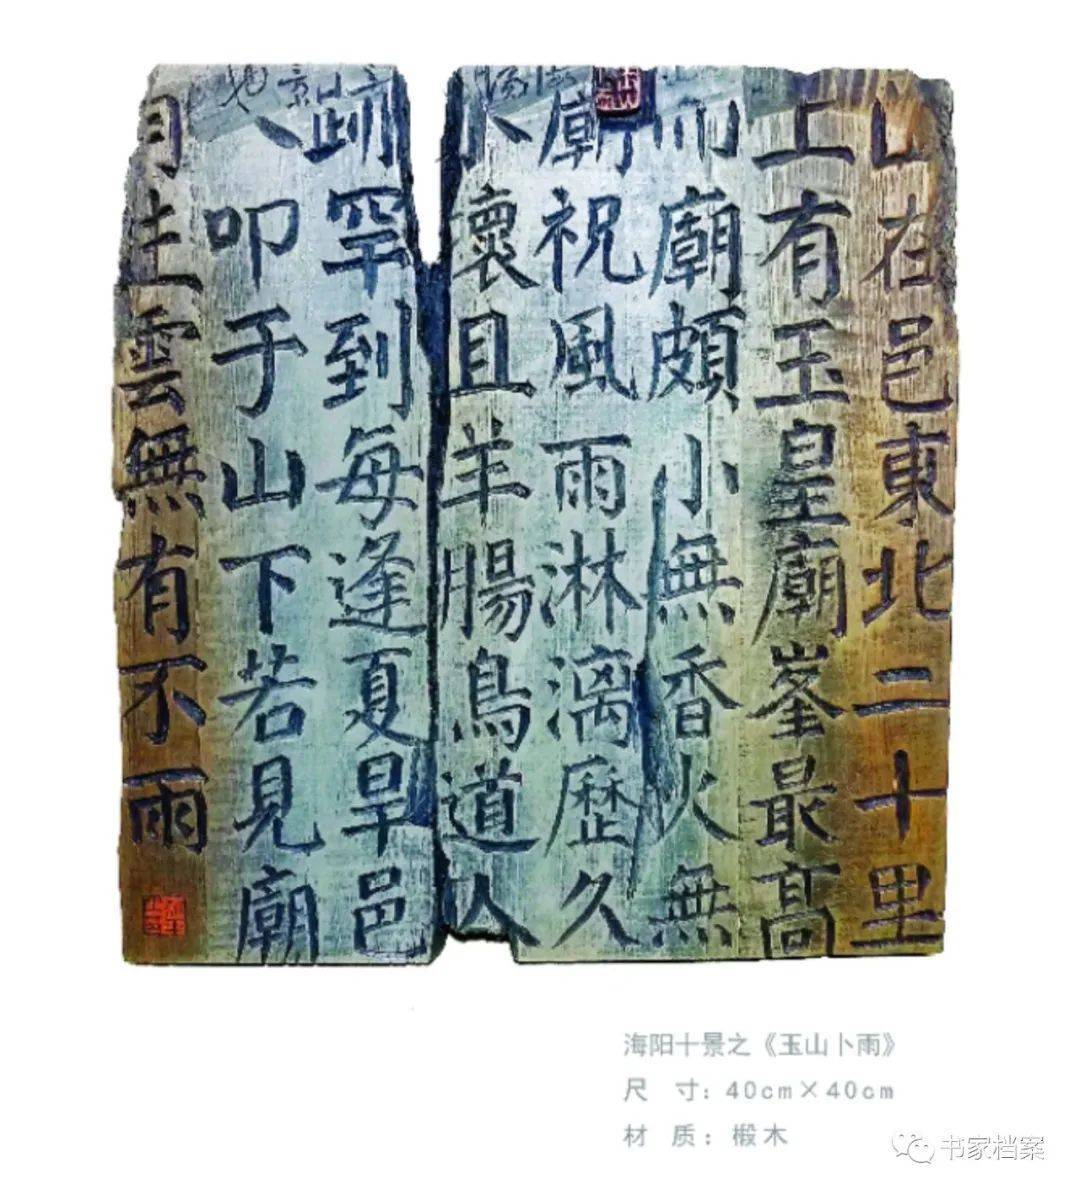 山在邑東北二十里
上有玉皇廟峯最高
而廟頗小無香火無
廟祝風雨淋漓歷久
不壞且羊腸鳥道人
跡罕到每逢夏旱邑
人叩于山下若見廟
生雲無有不雨
海阳十景之《玉山卜雨》
尺 寸：40cm×40cm
材 质：椴木
书家档案